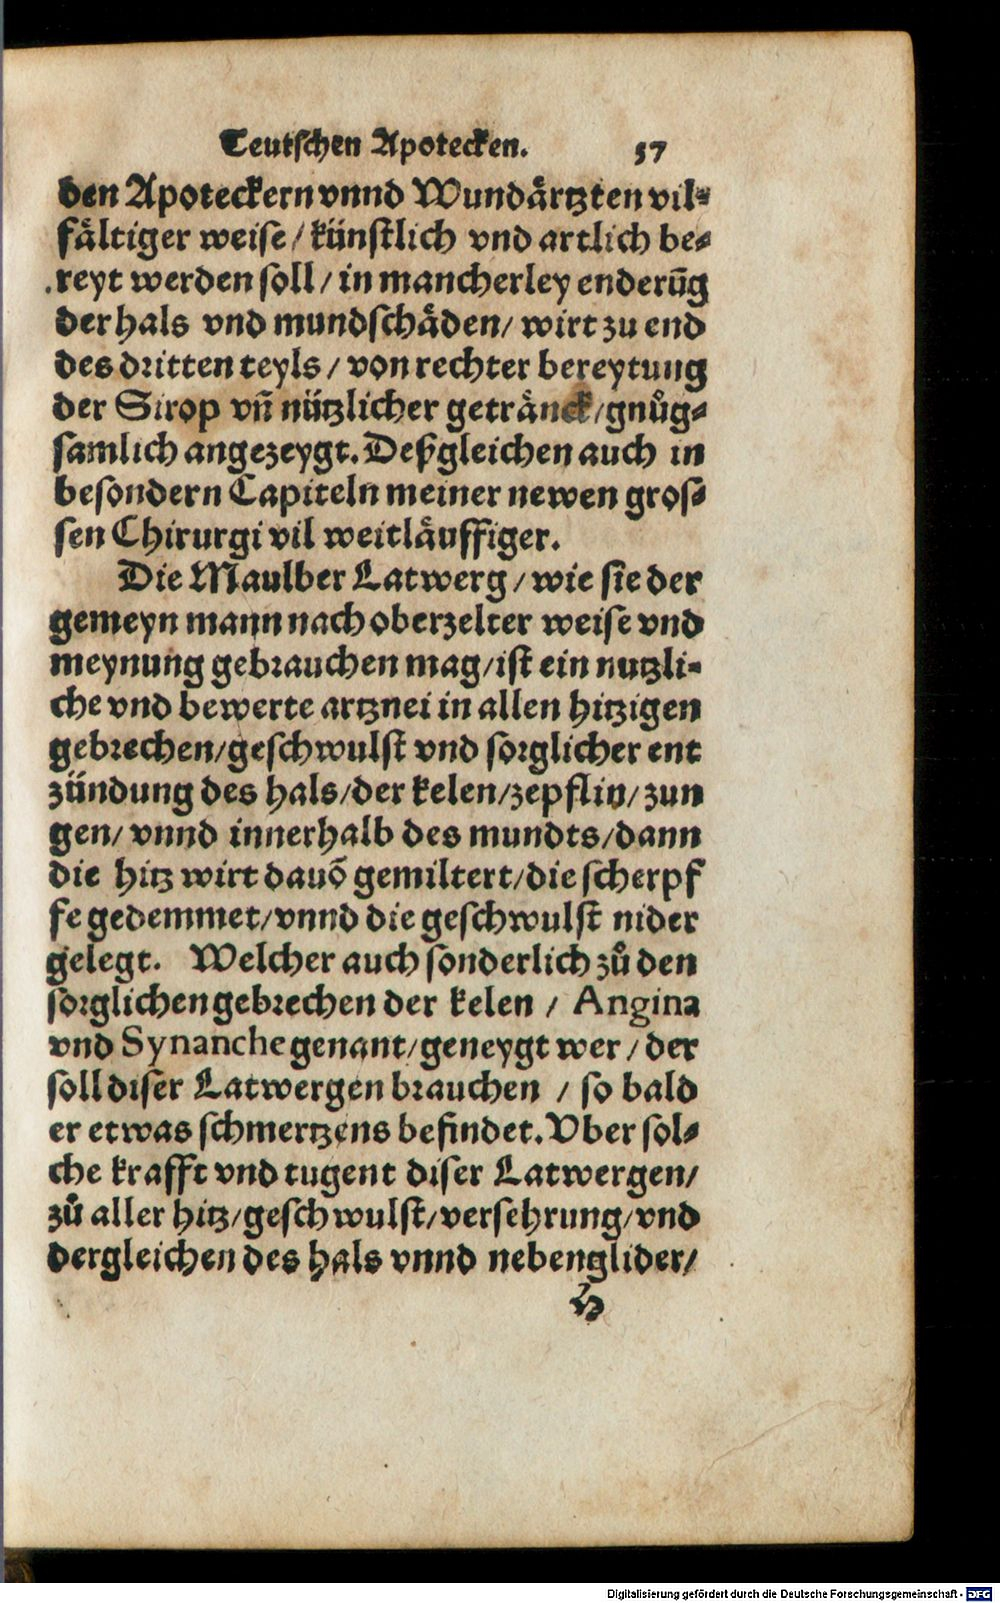 Teutschen Apotecken. 57
den Apoteckern vnnd Wundaͤrtzten vil⸗
faͤltiger weise / künstlich vnd artlich be⸗
reyt werden soll / in mancherley enderūg
der hals vnd mundschaͤden / wirt zu end
des dritten teyls / von rechter bereytung
der Sirop vñ nützlicher getraͤnck / gnuͦg⸗
samlich angezeygt. Deßgleichen auch in
besondern Capiteln meiner newen gros⸗
sen Chirurgi vil weitlaͤuffiger.
Die Maulber Latwerg / wie sie der
gemeyn mann nach oberzelter weise vnd
meynung gebrauchen mag / ist ein nutzli⸗
che vnd bewerte artznei in allen hitzigen
gebrechen / geschwulst vnd sorglicher ent
zündung des hals / der kelen / zepflin / zun
gen / vnnd innerhalb des mundts / dann
die hitz wirt dauō gemiltert / die scherpf
fe gedemmet / vnnd die geschwulst nider
gelegt. Welcher auch sonderlich zuͦ den
sorglichen gebrechen der kelen / Angina
vnd Synanche genant / geneygt wer / der
soll diser Latwergen brauchen / so bald
er etwas schmertzens befindet. Vber sol⸗
che krafft vnd tugent diser Latwergen /
zuͦ aller hitz / geschwulst / versehrung / vnd
dergleichen des hals vnnd nebenglider /
H
Digitalisierung gefördert durch die Deutsche Forschungsgemeinschaft - DFG